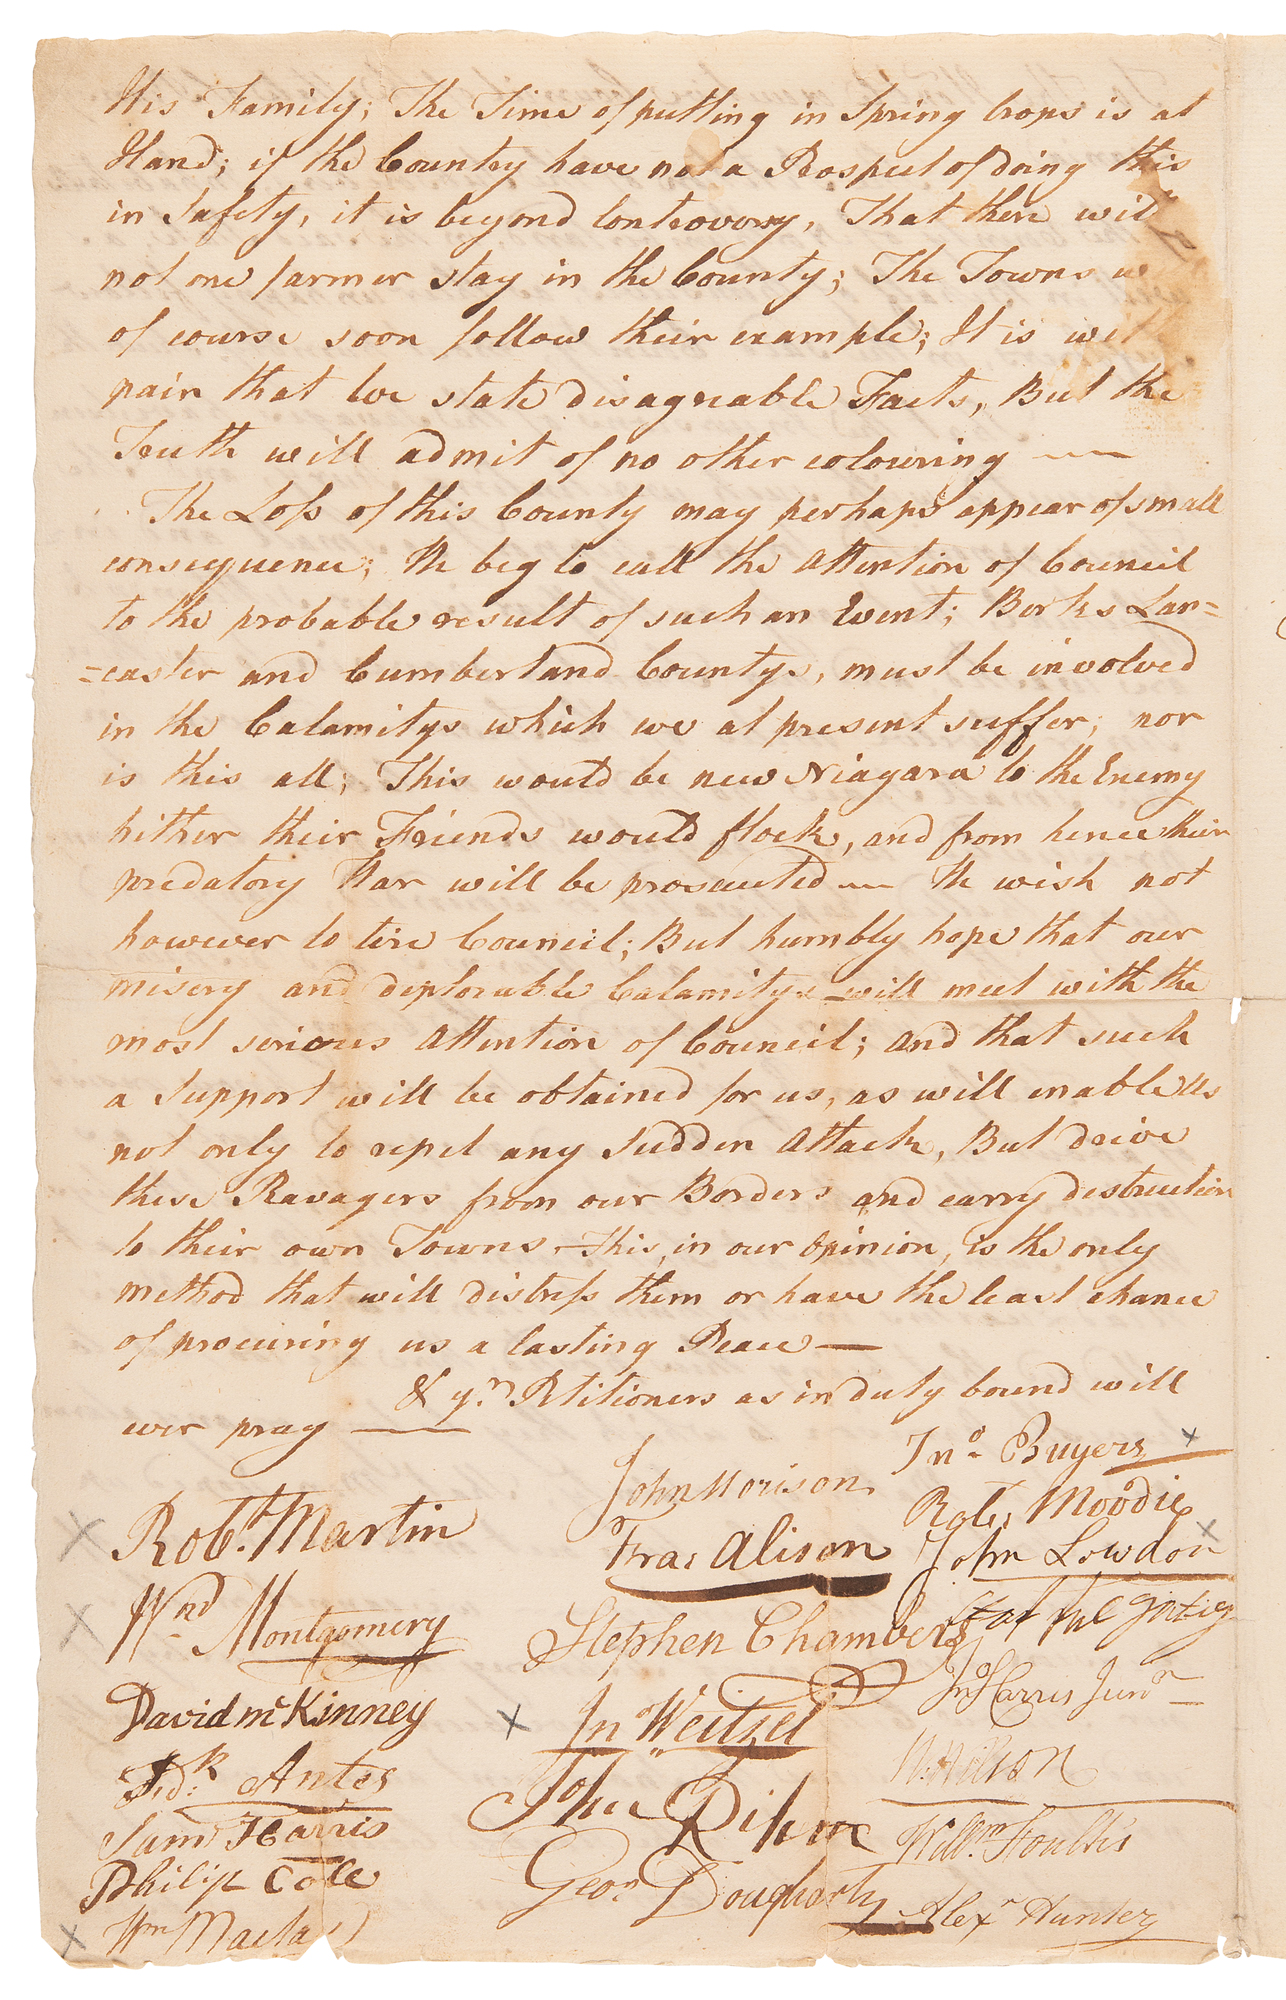 His Family; The Time of putting in Spring Crops is at
Hand; if the Country have not a Prospect of doing this
in Safety, it is beyond Controversy, That there will
not one farmer stay in the County; The Towns w
of course soon follow their example; It is wit
pain that we state disagreable Facts, But the
Truth will admit of no other colouring —
The Loss of this County may perhaps appear of small
consequence; We beg to call the Attention of Council
to the probable result of such an Event; Berks Lan=
=caster and Cumberland Countys, must be involved
in the Calamitys which we at present suffer; nor
is this all; This would be new Niagara to the Enemy
hither their Friends would flock, and from hence their
predatory War will be prosecuted — We wish not
however to tire Council; But humbly hope that our
misery and deplorable Calamitys will meet with the
most serious Attention of Council; and that such
a Support will be obtained for us, as will enable Us
not only to repel any sudden Attack, But drive
these Ravagers from our Borders and carry destruction
to their own Towns - This, in our Opinion, is the only
method that will distress them or have the least chance
of procuring us a lasting Peace —
& yr. Petitioners as in duty bound will
ever pray —
Robt. Martin
Wm Montgomery
David McKinney
Fredk. Antes
Saml Harris
Philip Cole
Wm Macla
John Morison
Fras Alison
Stephen Chambers
Jn Weitzel
George Dougharty
Jno. Buyers
Robt. Moodie
John Lowdon
Jno Harris Junr
Willm. Foulkes
Alexr Hunter